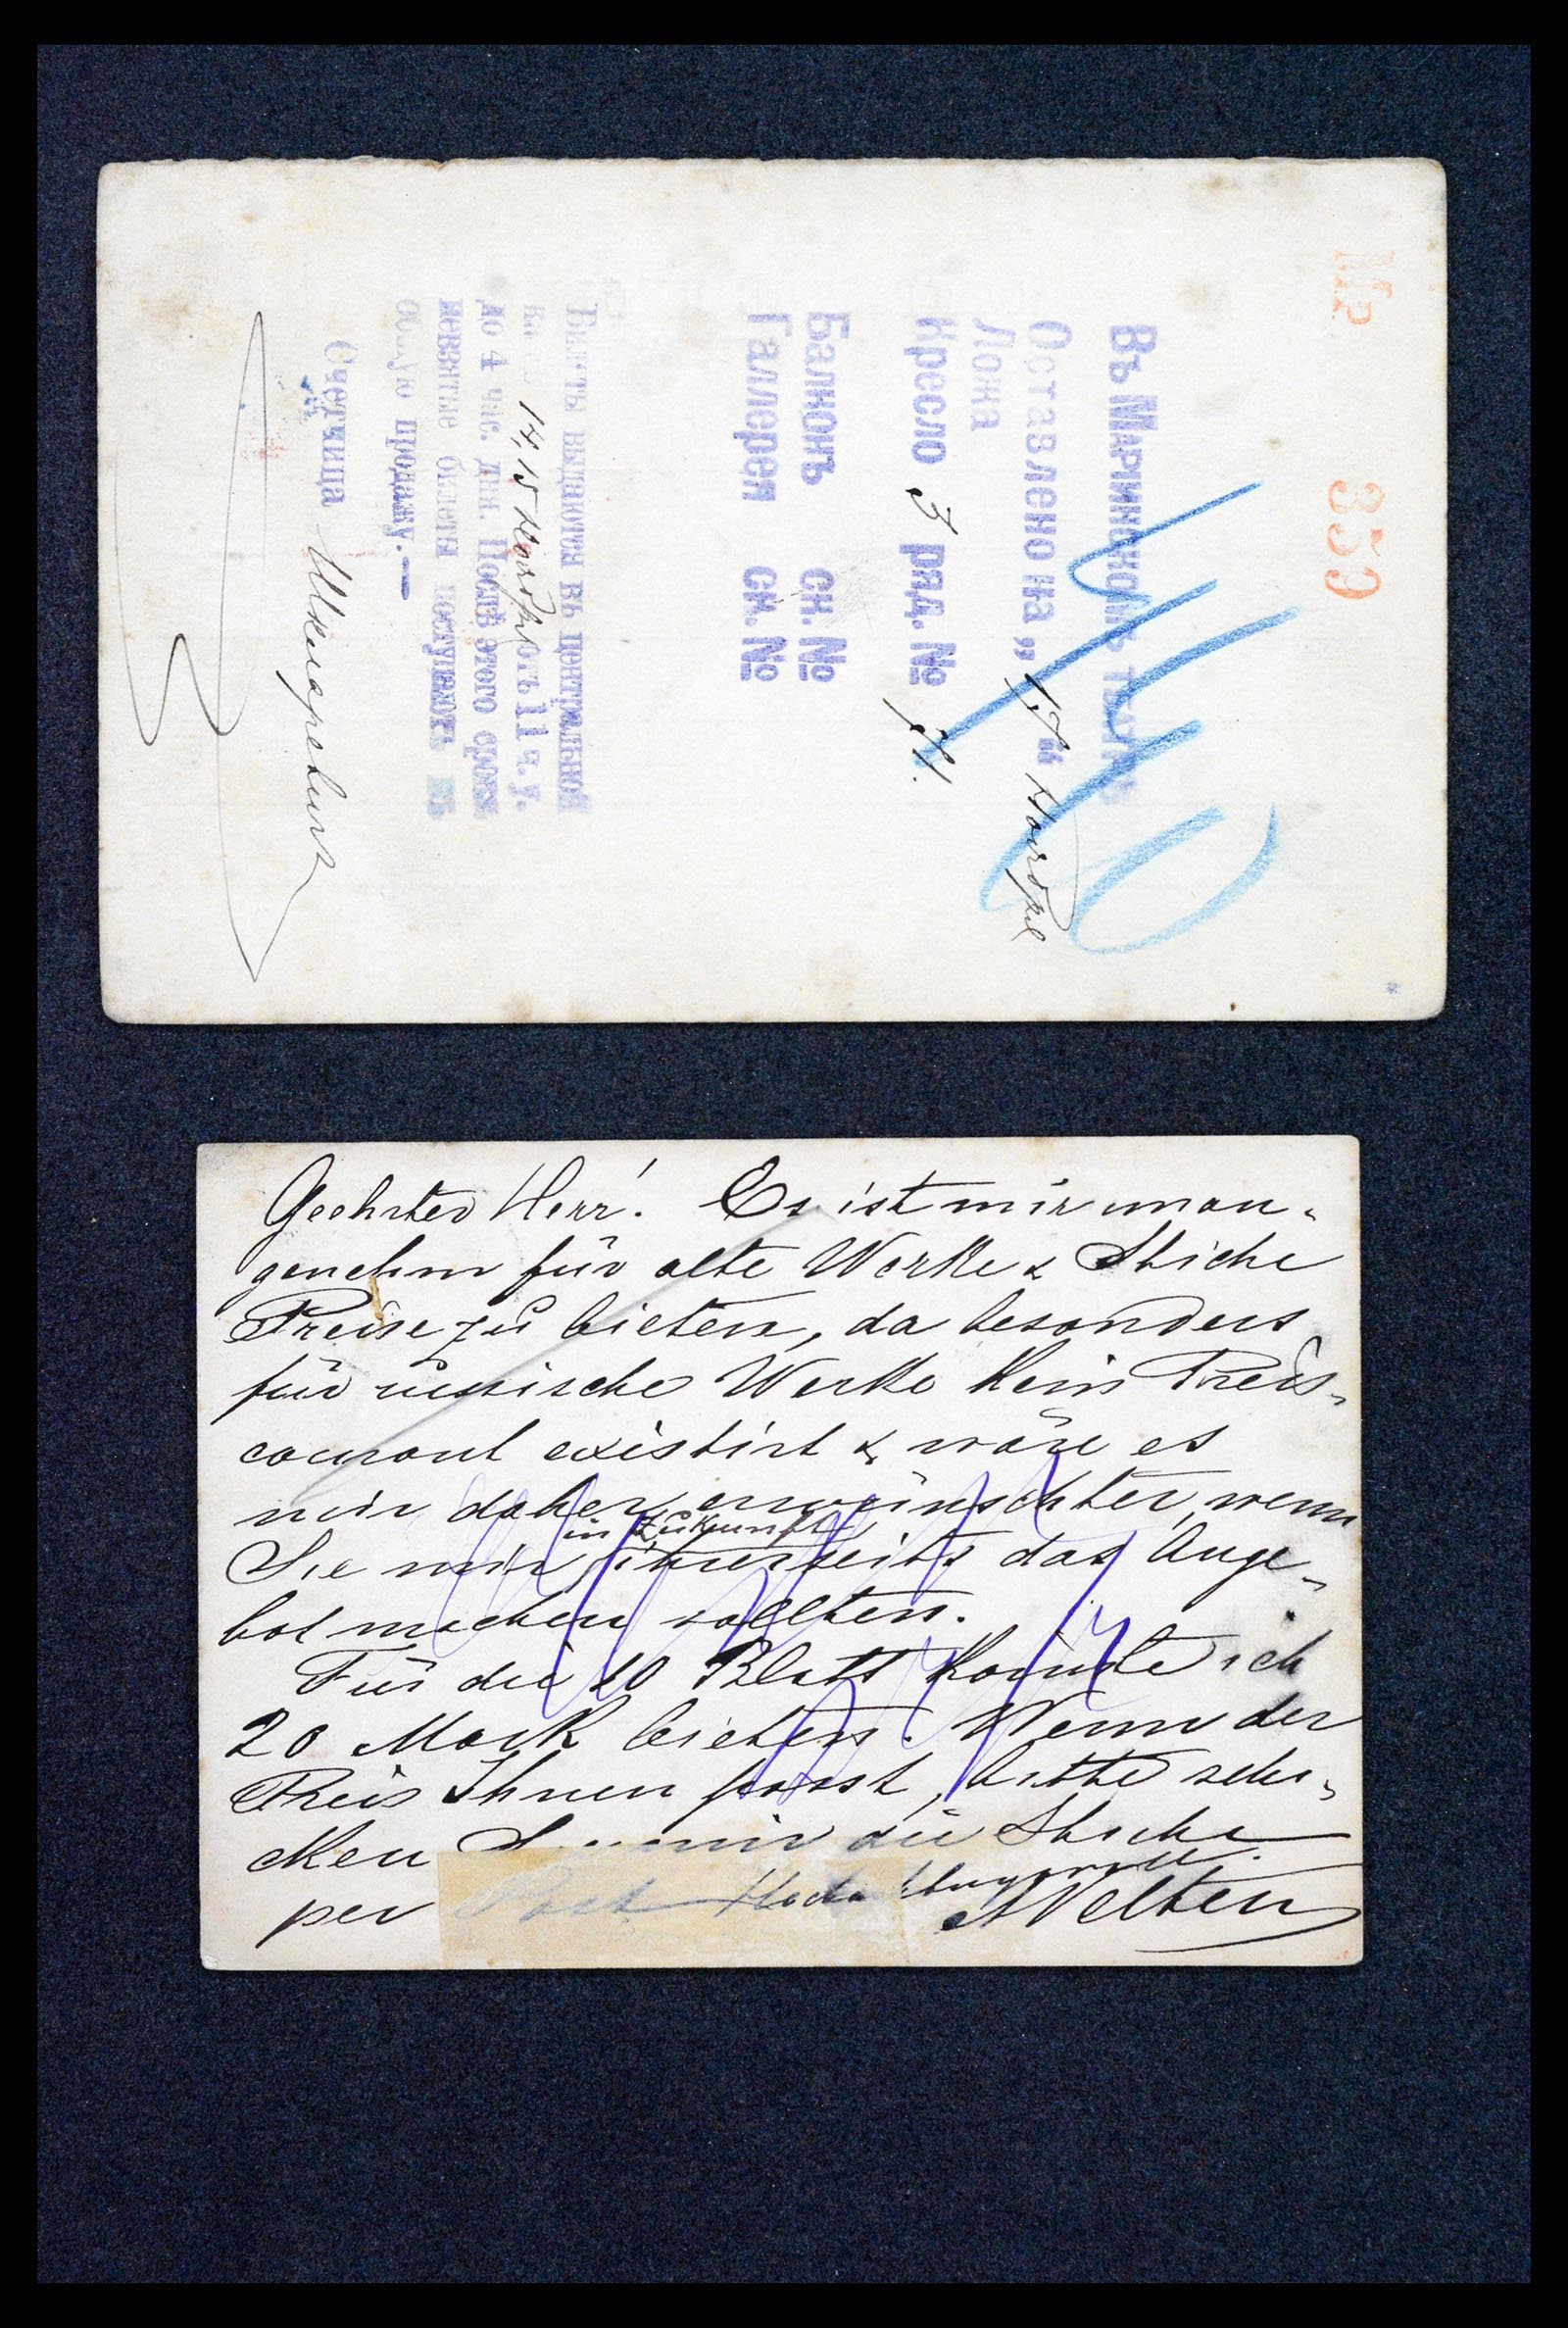 859
Въ Маріинскомъ
Оставлено на „17“ Ноября
Ложа
Кресло 3 ряд. №
Балконъ ск. №
Галлерея ск. №
Билеты выдаются въ центральной
14, 15 Ноября отъ 11 ч. у.
до 4 час. дня. Послѣ этого срока
невзятые билеты поступаютъ въ
продажу.—
Счетчица
Geehrter Herr! Es ist mir unan-
genehm für alte Werke & Stiche
Preise zu bieten, da besonders
für russische Werke kein Preis-
courant existirt & wäre es
mir daher erwünschter, wenn
in Zukunft
Sie mir ihrerseits das Ange-
bot machen sollten.
Für die 10 Blatt könnte ich
20 Mark bieten. Wenn der
Preis Ihnen passt, bitte schi-
cken mir die Stiche
per Post Hochachtungsvoll
A Velten